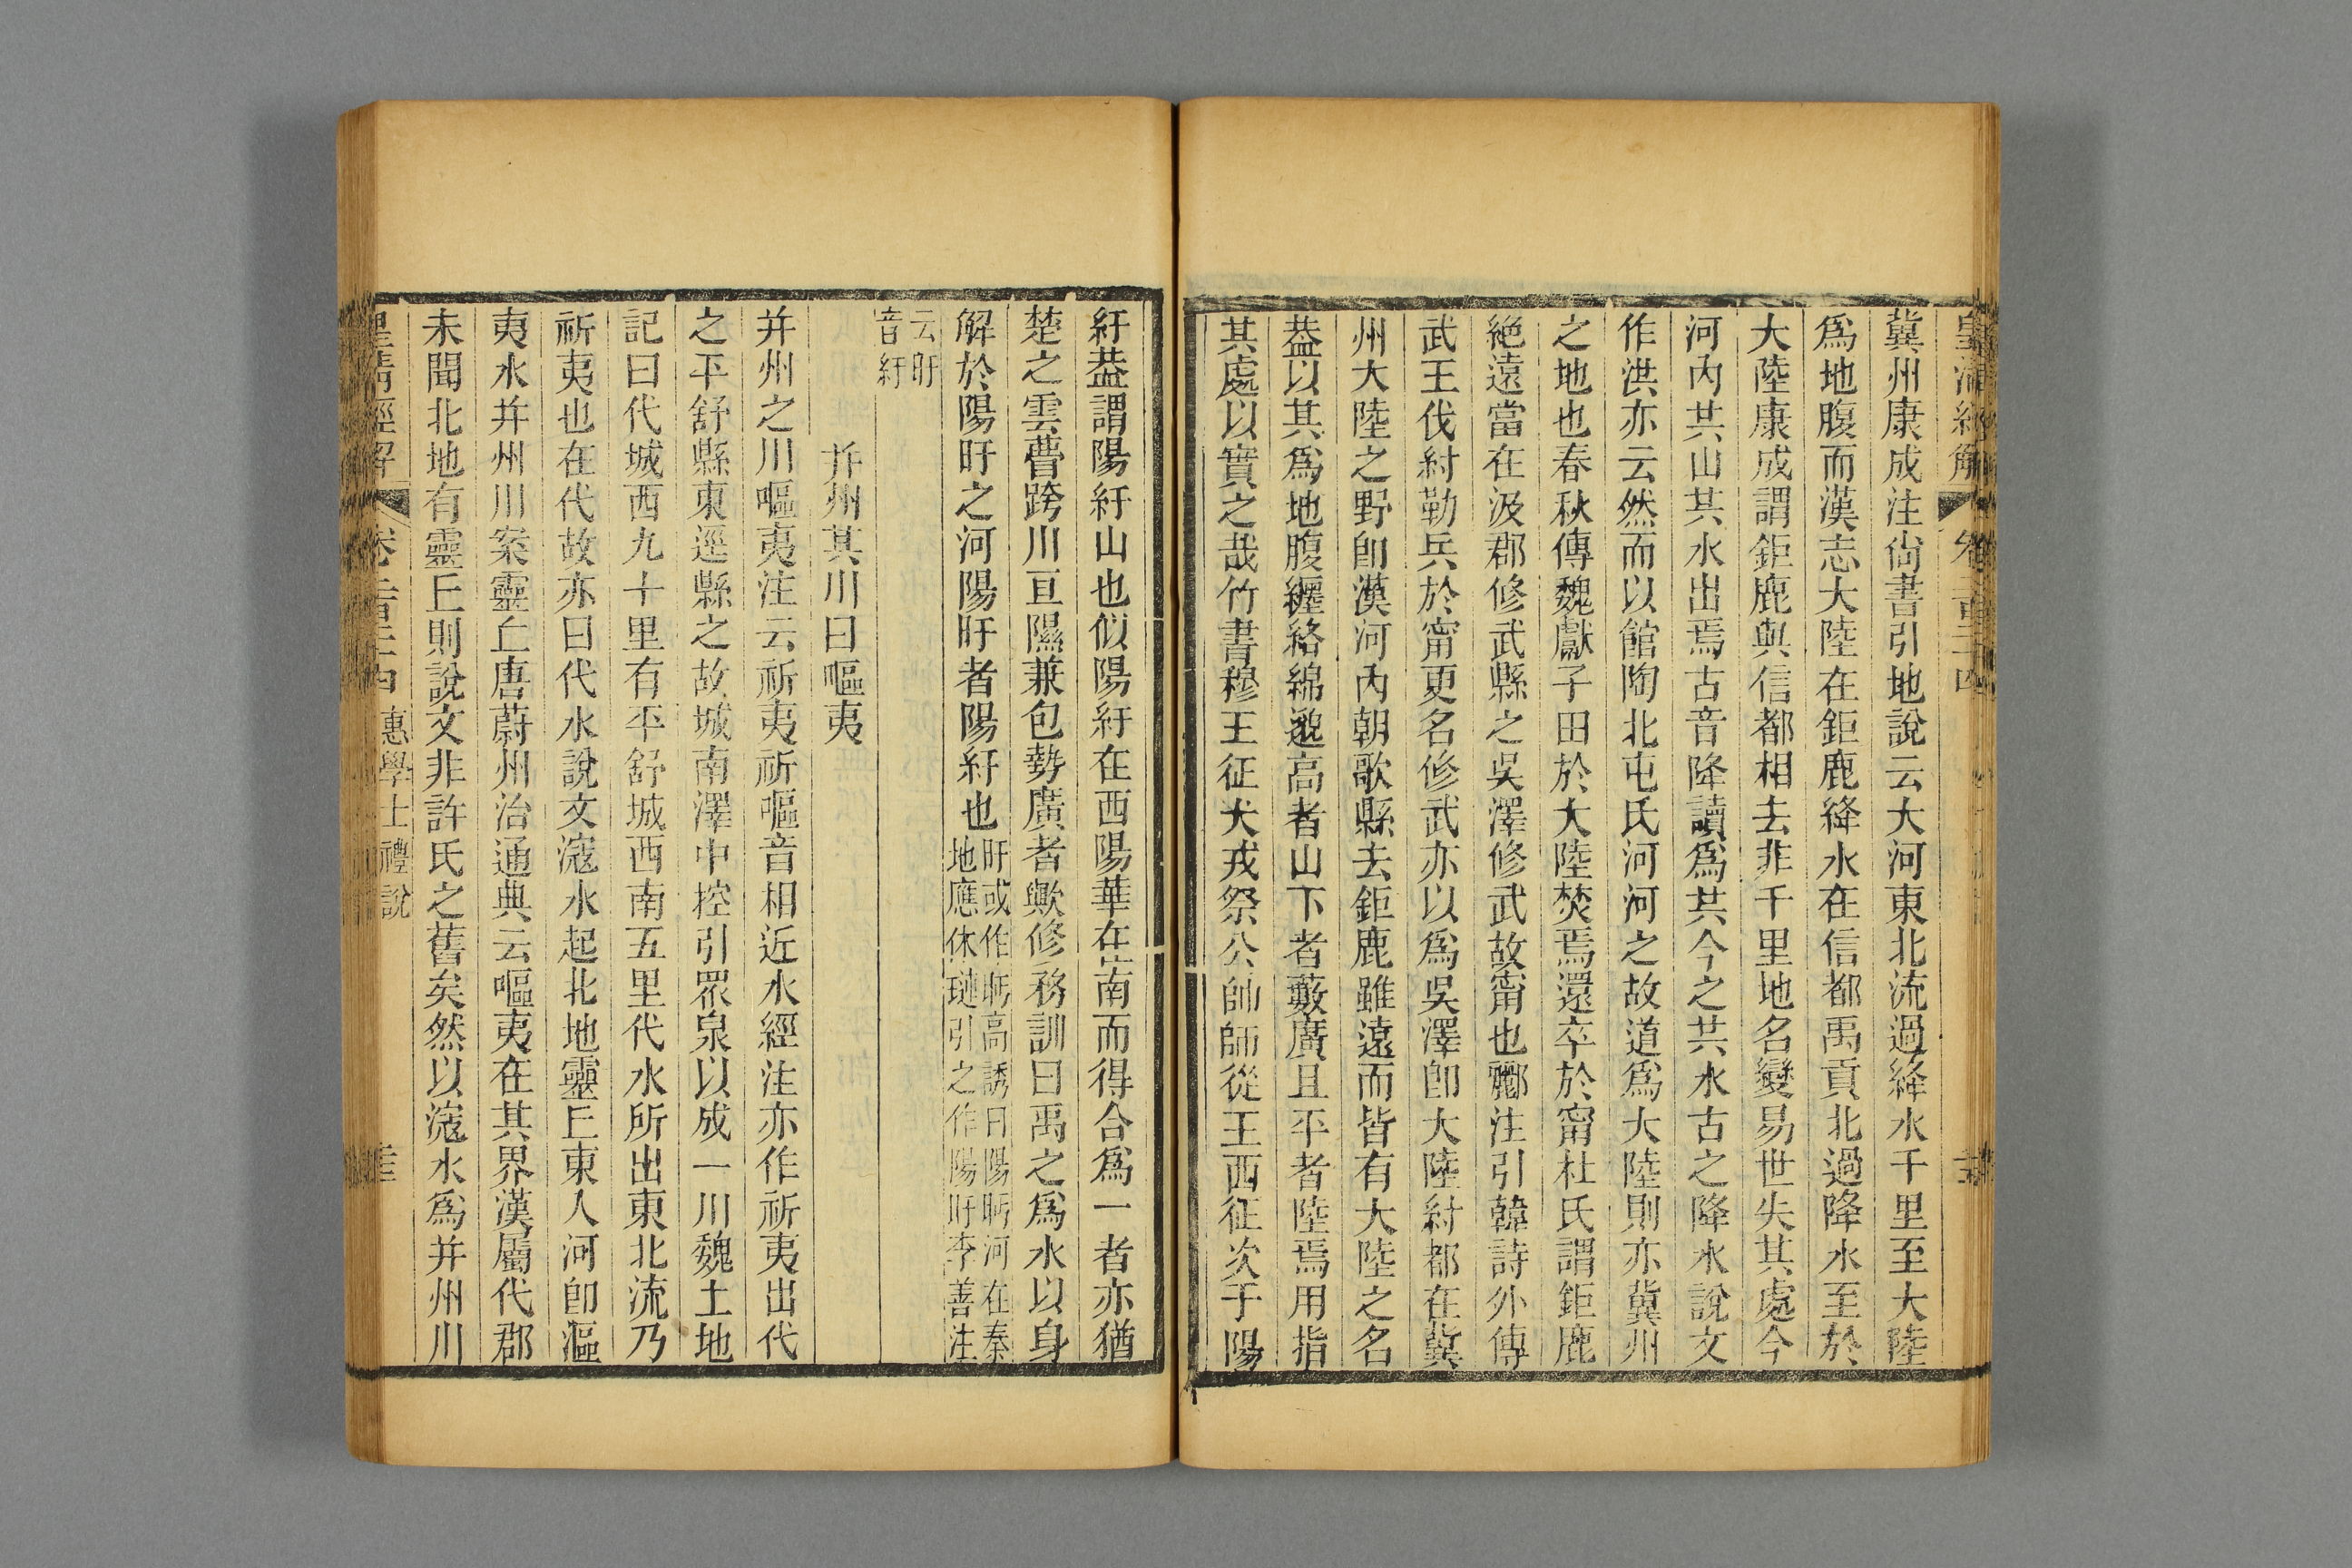 皇清經解 卷二百二十四
冀州康成注尙書引地說云大河東北流過絳水千里至大陸
爲地腹而漢志大陸在鉅鹿絳水在信都禹貢北過降水至於
大陸康成謂鉅鹿與信都相去非千里地名變易世失其處今
河內共山其水出焉古音降讀爲共今之共水古之降水說文
作洪亦云然而以館陶北屯氏河河之故道爲大陸則亦冀州
之地也春秋傳魏獻子田於大陸焚焉還卒於甯杜氏謂鉅鹿
絕遠當在汲郡修武縣之吳澤修武故甯也酈注引韓詩外傳
武王伐紂勒兵於甯更名修武亦以爲吳澤卽大陸紂都在冀
州大陸之野卽漢河內朝歌縣去鉅鹿雖遠而皆有大陸之名
葢以其爲地腹纏絡綿邈高者山下者藪廣且平者陸焉用指
其處以實之哉竹書穆王征犬戎祭公帥師從王西征次于陽
紆葢謂陽紆山也似陽紆在西陽華在南而得合爲一者亦猶
楚之雲瞢跨川亘隰兼包勢廣者歟修務訓曰禹之爲水以身
解於陽盱之河陽盱者陽紆也盱或作眄高誘曰陽眄河在秦
地應休璉引之作陽盱李善注
云盱
音紆
幷州其川曰嘔夷
幷州之川嘔夷注云祈夷祈嘔音相近水經注亦作祈夷出代
之平舒縣東逕縣之故城南澤中控引眾泉以成一川魏土地
記曰代城西九十里有平舒城西南五里代水所出東北流乃
祈夷也在代故亦曰代水說文滱水起北地靈丘東人河卽漚
夷水幷州川案靈丘唐蔚州治通典云嘔夷在其界漢屬代郡
未聞北地有靈丘則說文非許氏之舊矣然以滱水爲幷州川
皇清經解 卷二百二十四 惠學士禮說